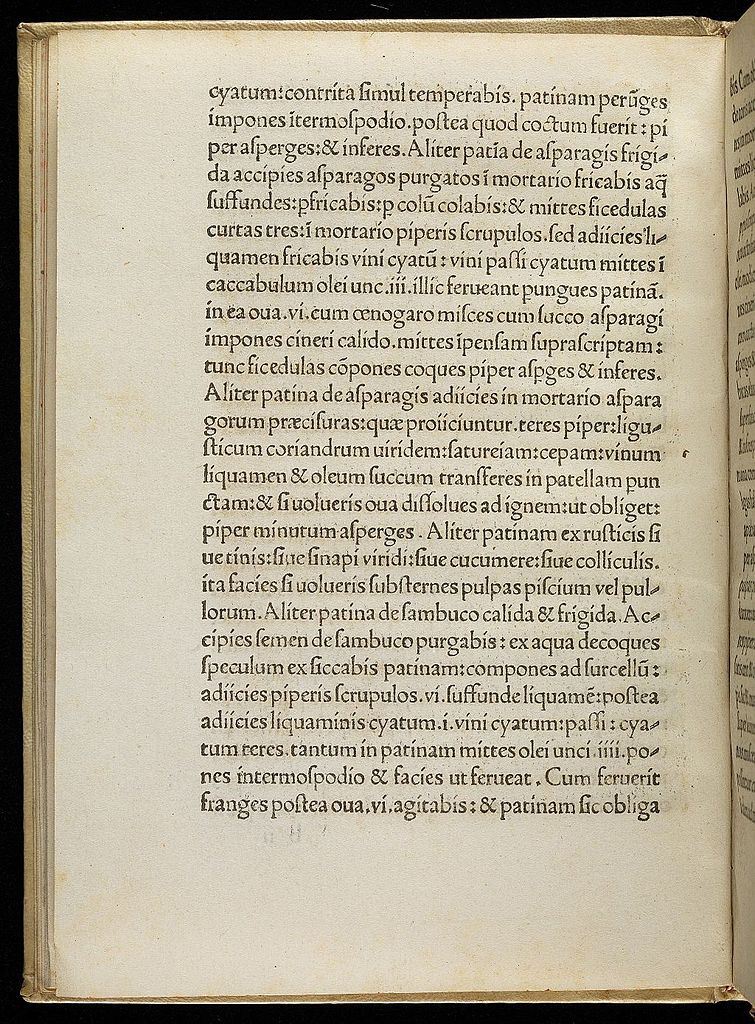 cyatum:contrita ſimul temperabis. patinam perūges
impones ītermoſpodio.poſtea quod coctum fuerit : pi
per aſperges:& inferes. Aliter patīa de aſparagis frigi⸗
da accipies aſparagos purgatos ī mortario fricabis aq̄
ſuffundes:ꝑfricabis:ꝑ colū colabis:& mittes ficedulas
curtas tres:ī mortario piperis ſcrupulos.ſed adiicies li⸗
quamen fricabis vini cyatū : vini paſſi cyatum mittes ī
caccabulum olei unc.iii.illic ferueant pungues patinā.
in ea oua.vi.cum œnogaro miſces cum ſucco aſparagi
impones cineri calido.mittes īpenſam ſupraſcriptam :
tunc ficedulas cōpones coques piper aſꝑges & inferes.
Aliter patina de aſparagis adiicies in mortario aſpara
gorum præciſuras:quæ proiiciuntur.teres piper:ligu⸗
ſticum coriandrum uiridem:ſatureiam:cepam:vinum
liquamen & oleum ſuccum tranſferes in patellam pun
ctam:& ſi uolueris oua diſſolues ad ignem:ut obliget:
piper minutum aſperges . Aliter patinam ex ruſticis ſi
ue tinis:ſiue ſinapi viridi:ſiue cucumere:ſiue colliculis.
ita facies ſi uolueris ſubſternes pulpas piſcium vel pul⸗
lorum. Aliter patina de ſambuco calida & frigida. Ac⸗
cipies ſemen de ſambuco purgabis : ex aqua decoques
ſpeculum ex ſiccabis patinam:compones ad ſurcellū :
adiicies piperis ſcrupulos.vi.ſuffunde liquamē:poſtea
adiicies liquaminis cyatum.i.vini cyatum:paſſi : cya⸗
tum teres.tantum in patinam mittes olei unci.iiii.po⸗
nes intermoſpodio & facies ut ferueat . Cum feruerit
franges poſtea oua.vi.agitabis : & patinam ſic obliga